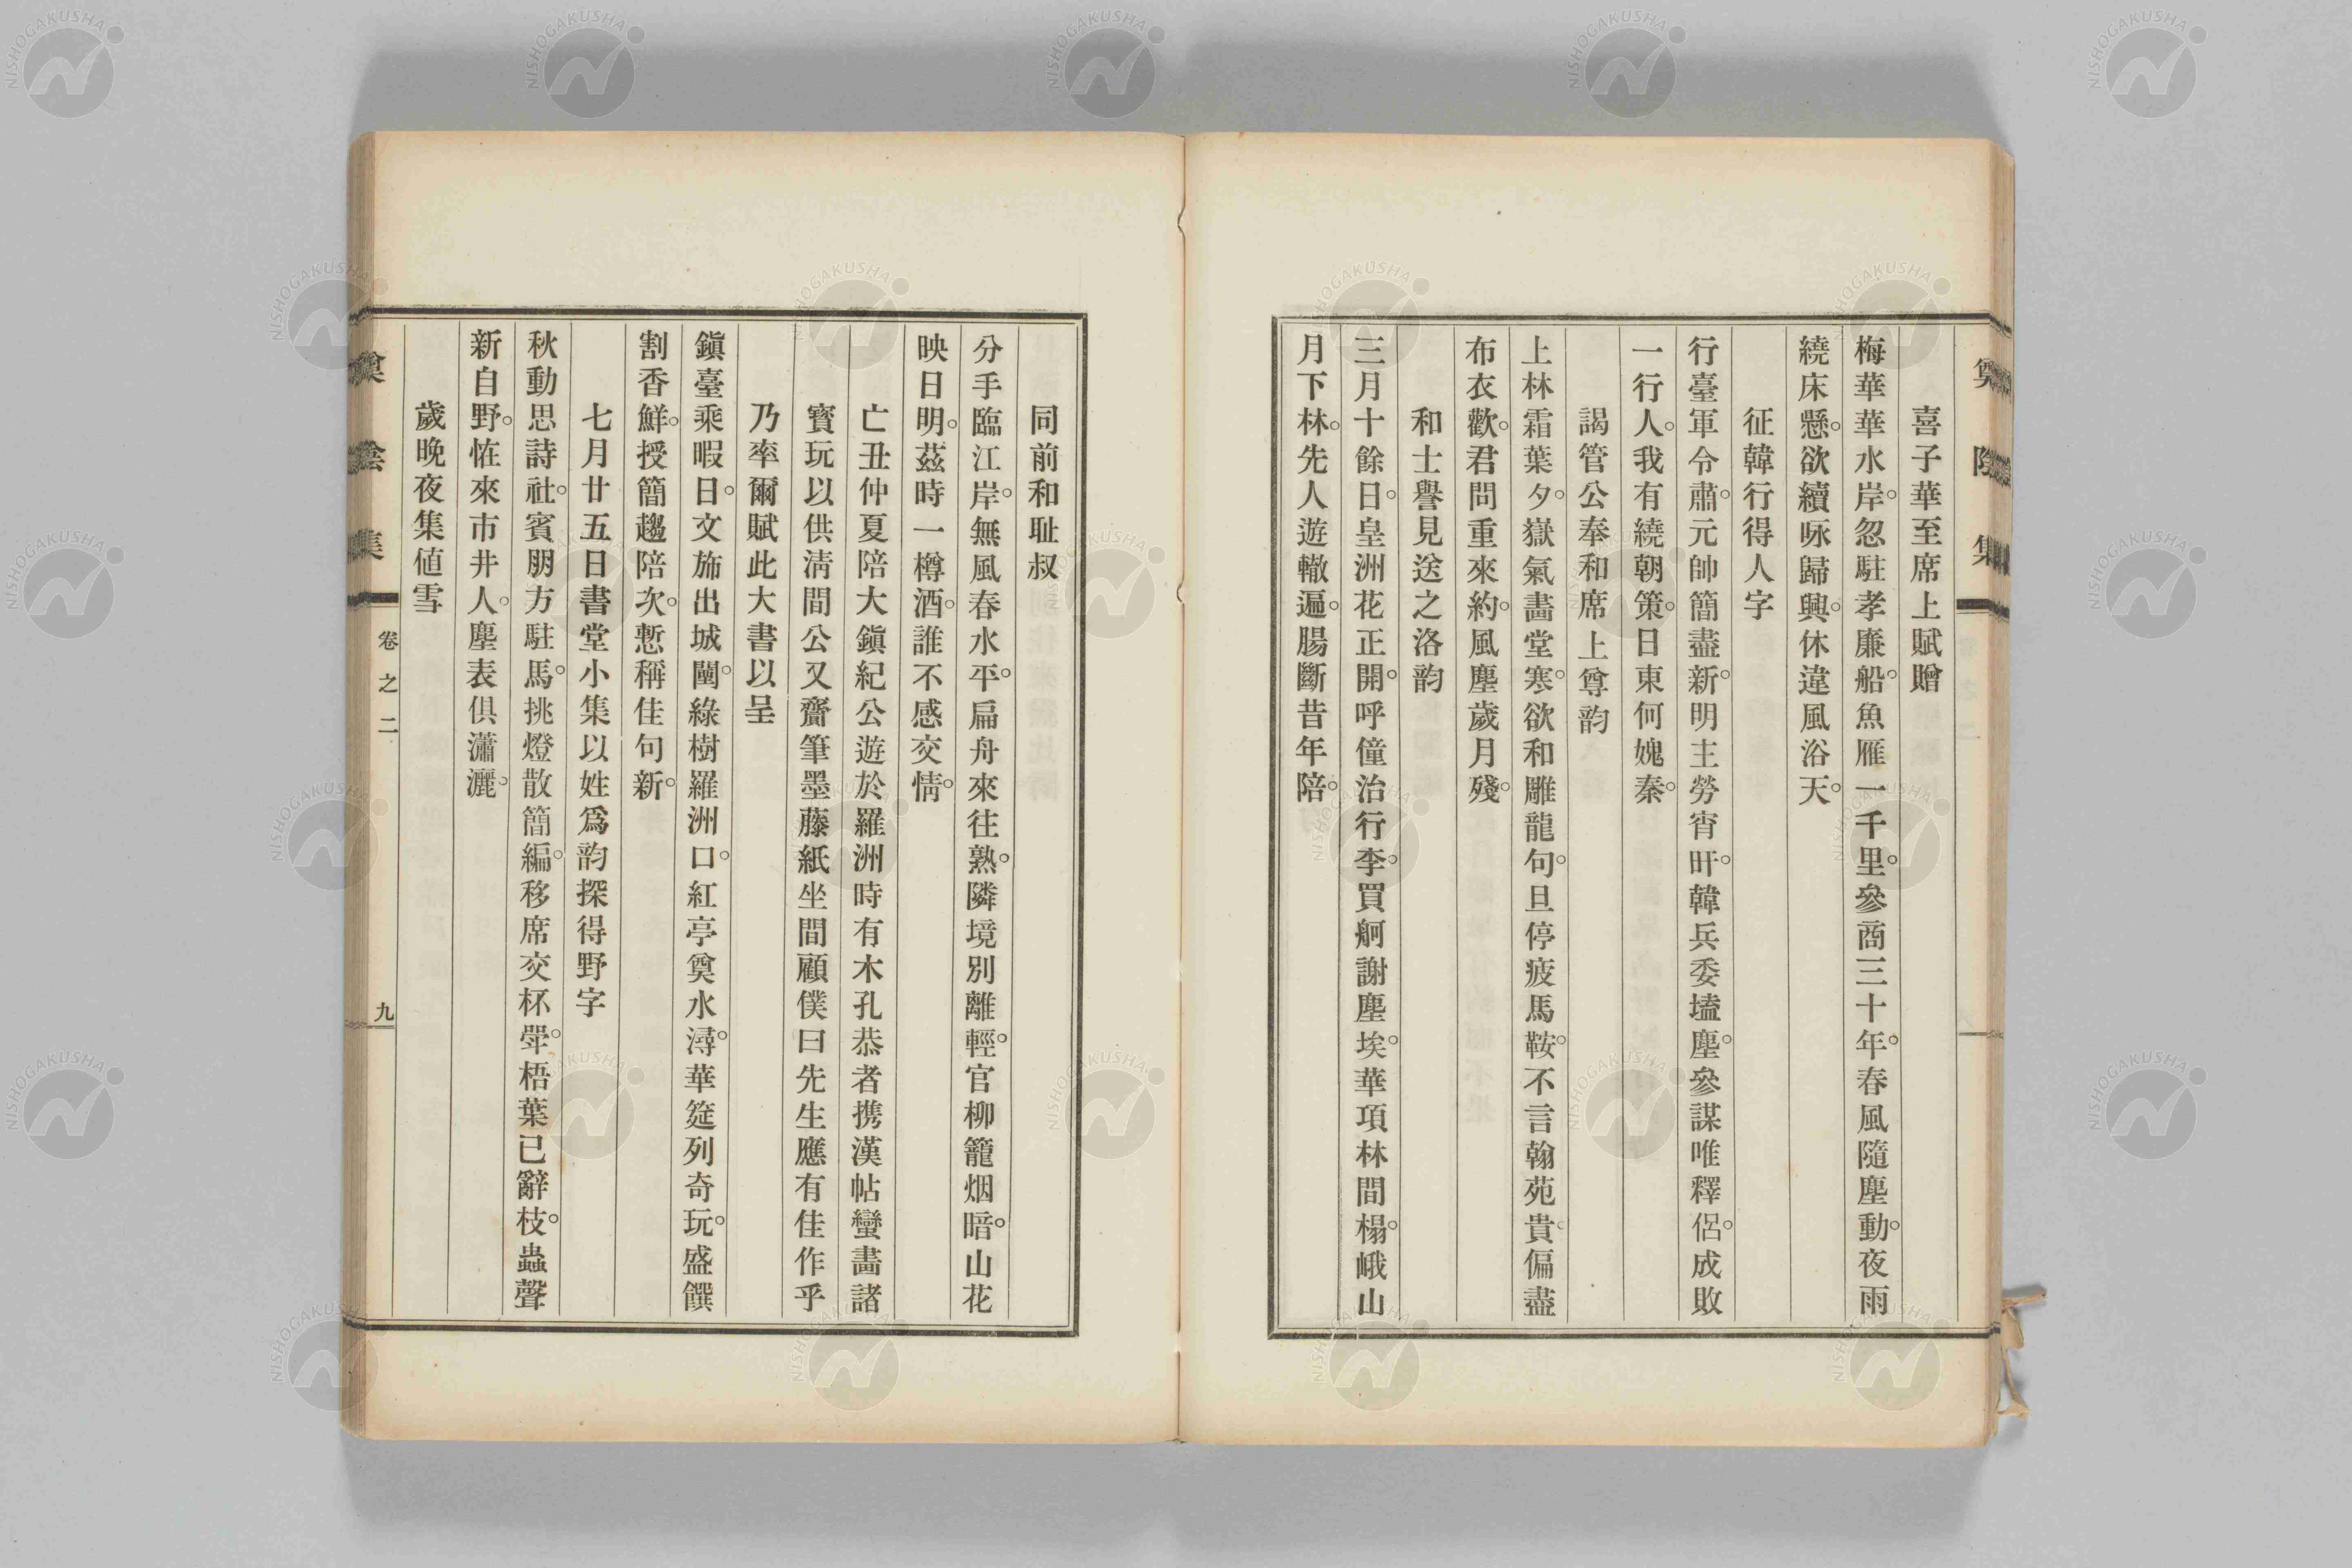 奠陰集
喜子華至席上賦贈
梅華華水岸。忽駐孝廉船。魚雁一千里。參商三十年。春風隨塵動。夜雨
繞床懸。欲續咏歸興。休違風浴天。
征韓行得人字
行臺軍令肅。元帥簡盡新。明主勞宵旰。韓兵委壒塵。參謀唯釋侶。成敗
一行人。我有繞朝策。日東何媿秦。
謁管公奉和席上尊韵
上林霜葉夕。嶽氣畵堂寒。欲和雕龍句。且停疲馬鞍。不言翰苑貴。偏盡
布衣歡。君問重來約。風塵歲月殘。
和士譽見送之洛韵
三月十餘日。皇洲花正開。呼僮治行李。買舸謝塵埃。華項林間榻。峨山
月下林。先人遊轍遍。腸斷昔年陪。
同前和耻叔
分手臨江岸。無風春水平。扁舟來往熟。隣境別離輕。官柳籠烟暗。山花
映日明。茲時一樽酒。誰不感交情。
亡丑仲夏陪大鎭紀公遊於羅洲時有木孔恭者携漢帖蠻畵諸
寶玩以供淸間公又齎筆墨藤紙坐間顧僕曰先生應有佳作乎
乃率爾賦此大書以呈
鎭臺乘暇日。文斾出城闉。綠樹羅洲口。紅亭奠水潯。華筵列奇玩。盛饌
割香鮮。授簡趨陪次。慙稱佳句新。
七月廿五日書堂小集以姓爲韵探得野字
秋動思詩社。賓朋方駐馬。挑燈散簡編。移席交杯斝。梧葉已辭枝。蟲聲
新自野。恠來市井人。塵表俱瀟灑。
歲晩夜集値雪
奠陰集
卷之二
九
NISHOGAKUSHA